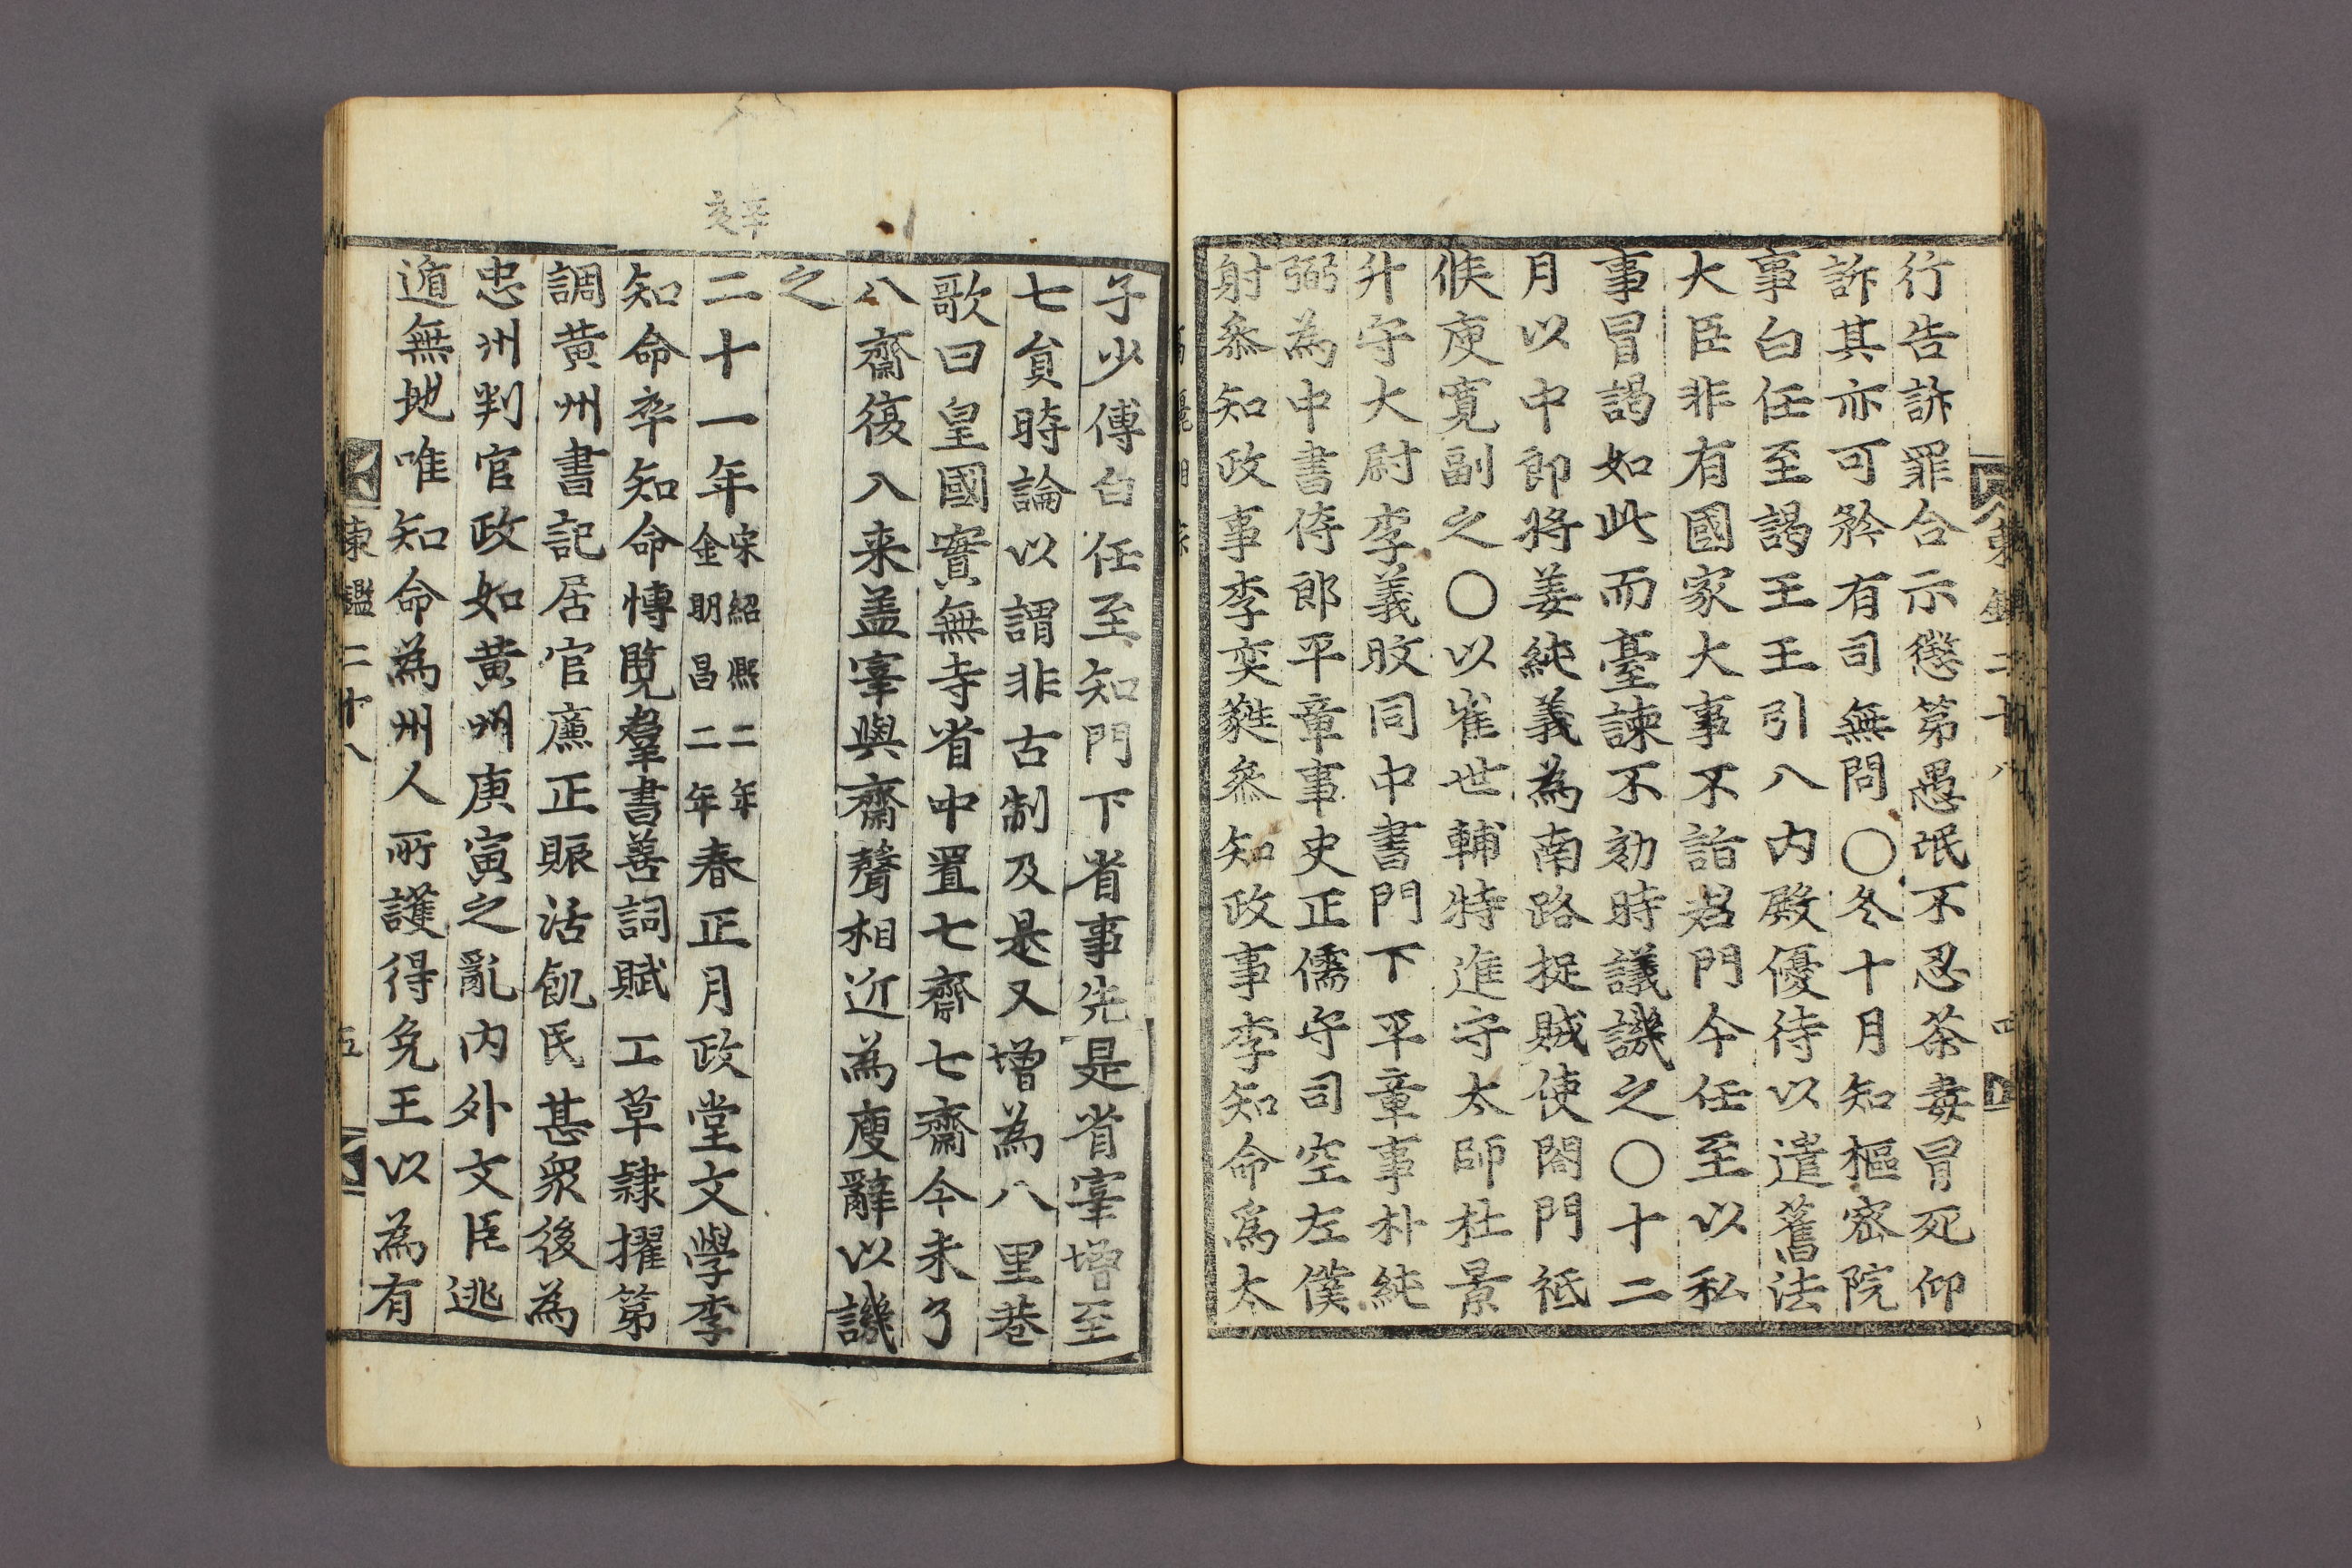 行告訴罪合示懲第愚氓不忍荼毒冒死仰
訴其亦可矜有司無問〇冬十月知樞密院
事白任至謁王王引入内殿優待以遣舊法
大臣非有國家大事不詣君門今任至以私
事冒謁如此而臺諫不劾時議譏之〇十二
月以中郎將姜純義為南路捉賊使閤門祗
候庾寛副之〇以崔世輔特進守太師杜景
升守大尉李義旼同中書門下平章事朴純
弼為中書侍郎平章事史正儒守司空左僕
射叅知政事李奕蕤叅知政事李知命爲太
東鑑二十八
四
子少傅白任至知門下省事先是省宰增至
七負時論以謂非古制及是又增為八里巷
歌曰皇國實無寺省中置七齋七齋今未了
八齋復入来盖宰與齋聲相近為廋辭以譏
之
辛亥
二十一年
宋紹熙二年
金明昌二年
春正月政堂文學李
知命卒知命博覧羣書善詞賦工草隸擢第
調黄州書記居官廉正賑活飢民甚衆後為
忠州判官政如黄州庚寅之亂内外文臣逃
遁無地唯知命為州人所護得免王以為有
東鑑二十八
五